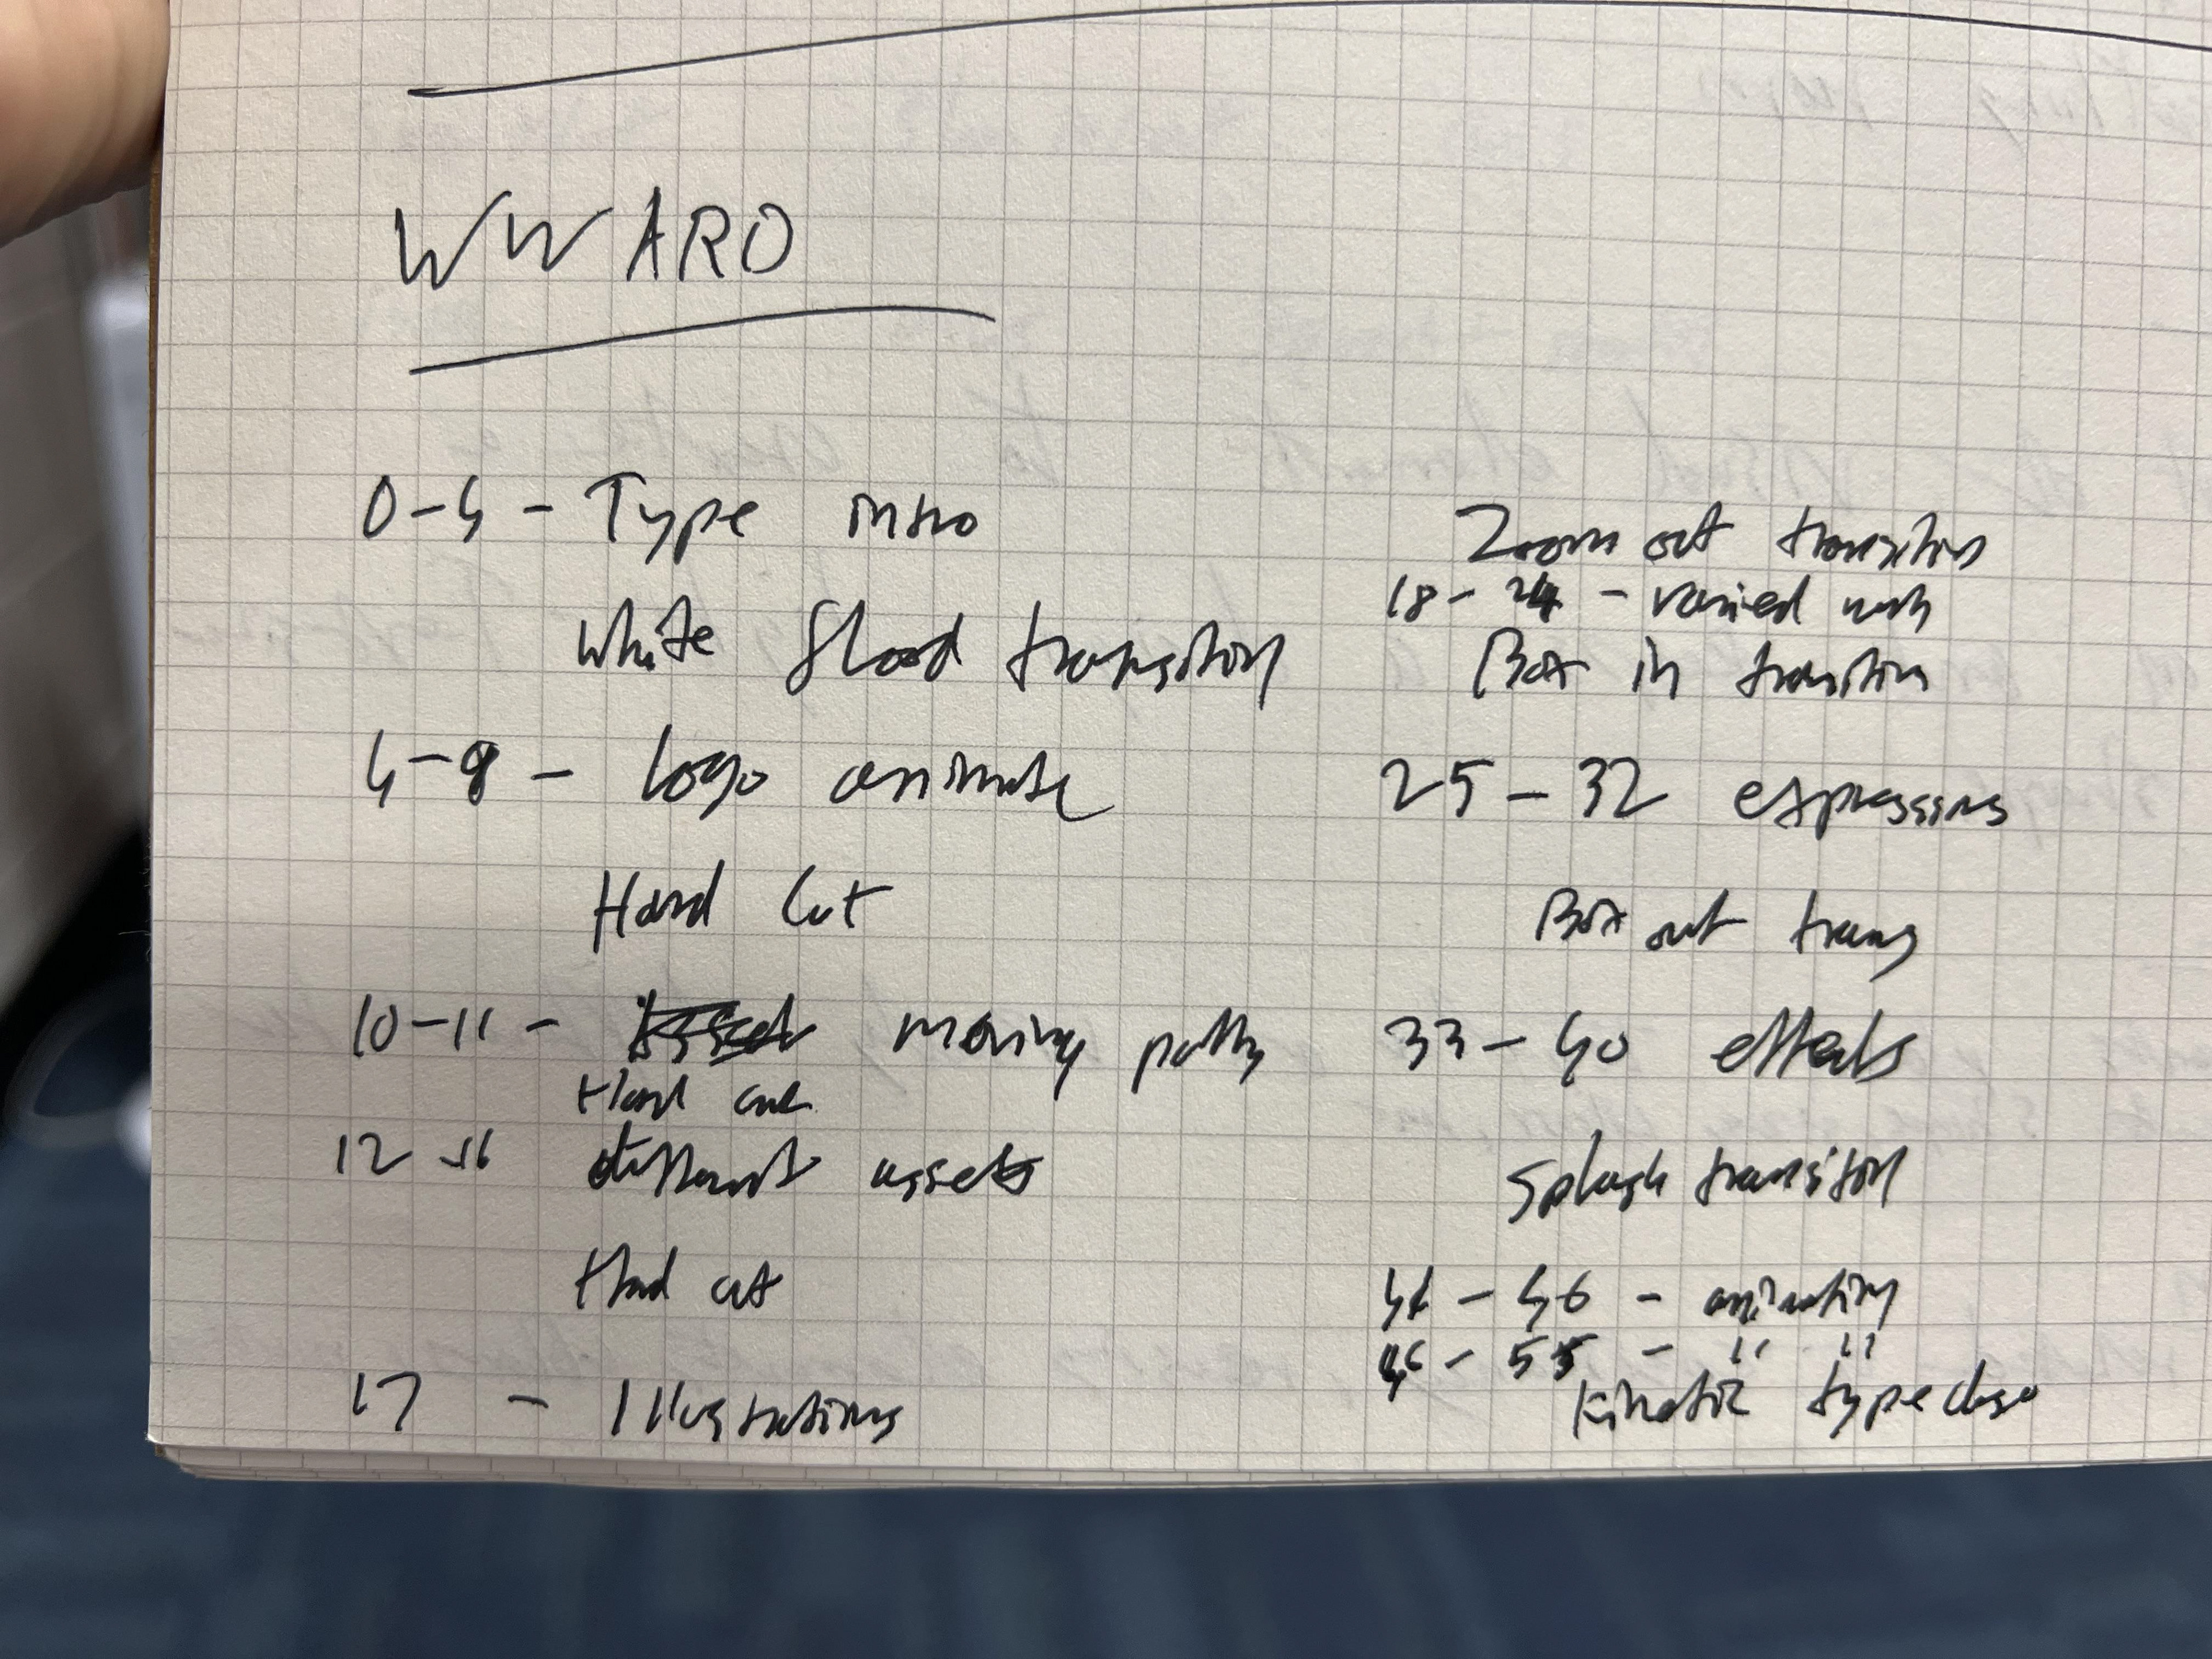 WWARO
0-4 - Type intro
White flood transition
4-8 - Logo animate
Hard Cut
10-11 - moving
Hard cut
12-16 different assets
Hard cut
17 - Illustrations
Zoom out transition
18-24 - varied
Box in transition
25-32 expressions
Box out trans
33-40 effects
Splash transition
41-46 - animation
46-55 - " "
Kinetic type close